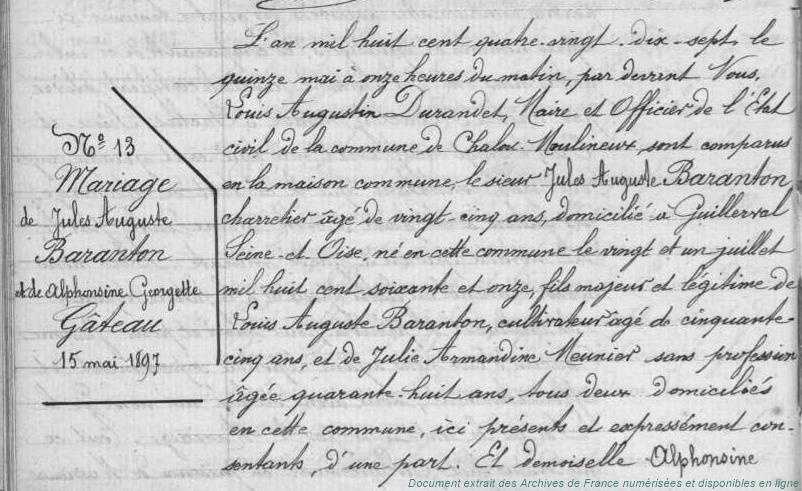 Nº 13
Mariage
de Jules Auguste
Baranton
et de Alphonsine Georgette
Gâteau
15 mai 1897
L'an mil huit cent quatre-vingt-dix-sept, le
quinze mai à onze heures du matin, par devant Nous,
Louis Augustin Durandet, Maire et Officier de l'Etat
civil de la commune de Chalou-Moulineux, sont comparus
en la maison commune, le sieur Jules Auguste Baranton,
charretier âgé de vingt-cinq ans, domicilié à Guillerval
Seine-et-Oise, né en cette commune le vingt et un juillet
mil huit cent soixante et onze, fils majeur et légitime de
Louis Auguste Baranton, cultivateur âgé de cinquante-
cinq ans, et de Julie Armandine Meunier sans profession
âgée quarante-huit ans, tous deux domiciliés
en cette commune, ici présents et expressément con-
sentants, d'une part. Et demoiselle Alphonsine
Document extrait des Archives de France numérisées et disponibles en ligne